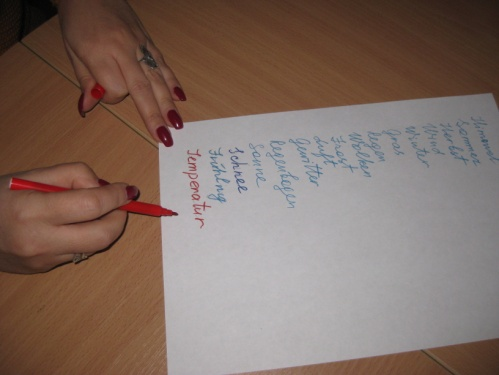 Sommer
Herbst
Wind
Winter
Gras
Regen
Wolken
Frost
Luft
Gewitter
Regenbogen
Sonne
Schnee
Frühling
Temperatur